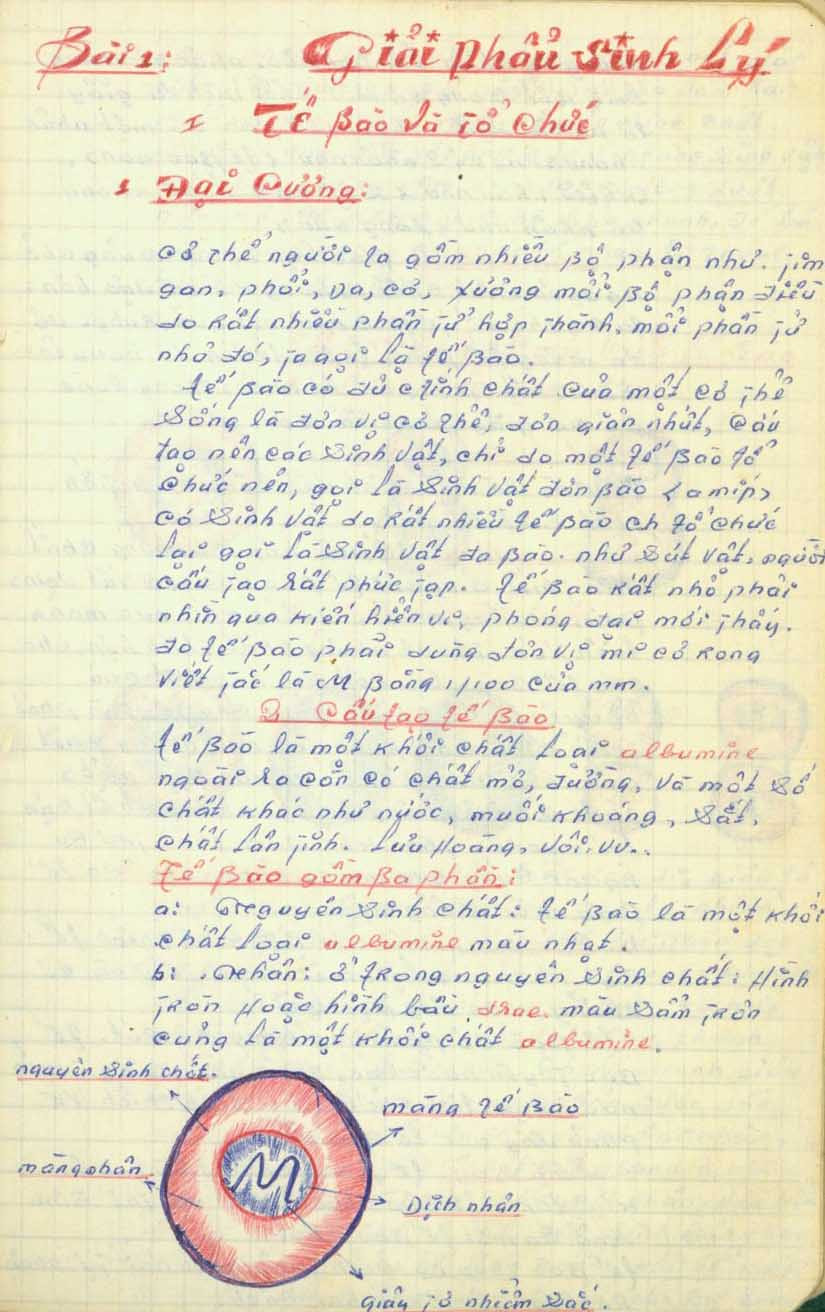 Bài 1: Giải Phẩu Sinh Lý
I Tế Bào Và Tổ Chức
1 Đại Cương:
Cơ thể người ta gồm nhiều bộ phận như. tim
gan, phổi, da, cơ, xương mỗi bộ phận điều
do rất nhiều phần tử hợp thành, mổi phần tử
nhỏ đó, ta gọi là tế bào.
tế bào có đủ tính chất của một cơ thể
sống là đơn vị cơ thể, đơn giản nhứt, cấu
tạo nên các sinh vật, chỉ do một tế bào tổ
chức nên, gọi là sinh vật đơn bào <amip>
có sinh vật do rất nhiều tế bào ch tổ chức
lại gọi là sinh vật đa bào. như sút vật, người
cấu tạo rất phức tạp. tế bào rất nhỏ phải
nhìn qua kiến hiển vi, phóng đại mới thấy.
đo tế bào phải dung đơn vị mi cơ rong
viết tắc là M bằng 1/100 của mm.
2. Cấu tạo tế bào
tế bào là một khối chất loại albumine
ngoài ra còn có chất mở, đường, và một số
chất khác như nước, muối khoáng, sắt,
chất lân tinh. lưu hoàng, vôi, vv..
Tế bào gồm ba phần:
a: Nguyên sinh chất: tế bào là một khối
chất loại albumine màu nhạt.
b: Nhân: ở trong nguyên sinh chất: Hình
tròn hoặc hình bầu màu sẩm tròn
cung là một khối chất albumine.
nguyên sinh chất.
màng tế bào
màng nhân
M
Dịch nhân
giây tơ nhiểm sắc.